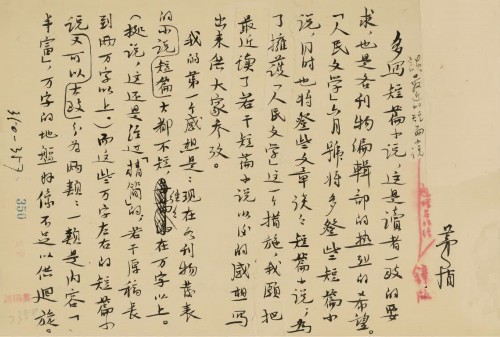 茅盾
多写短篇小说，这是讀者一致的要
求，也是各刊物编辑部的热烈的希望。
「人民文学」六月號将多登些短篇小
说，同时也将登些文章谈谈短篇小说；为
了擁護「人民文学」这一个措施，我願把
最近读了若干短篇小说以后的感想写
出来供大家参攷。
我的第一个感想是：现在各刊物发表
的小说短篇大都不短，往往在万字以上。
（据说，这还是经过「精简」的，若干原稿长
到两万字以上。）而这些万字左右的短篇小
说又可以大致分为两類：一類是内容
丰富，万字的地盤好像不足以供迴旋。
310-357
350